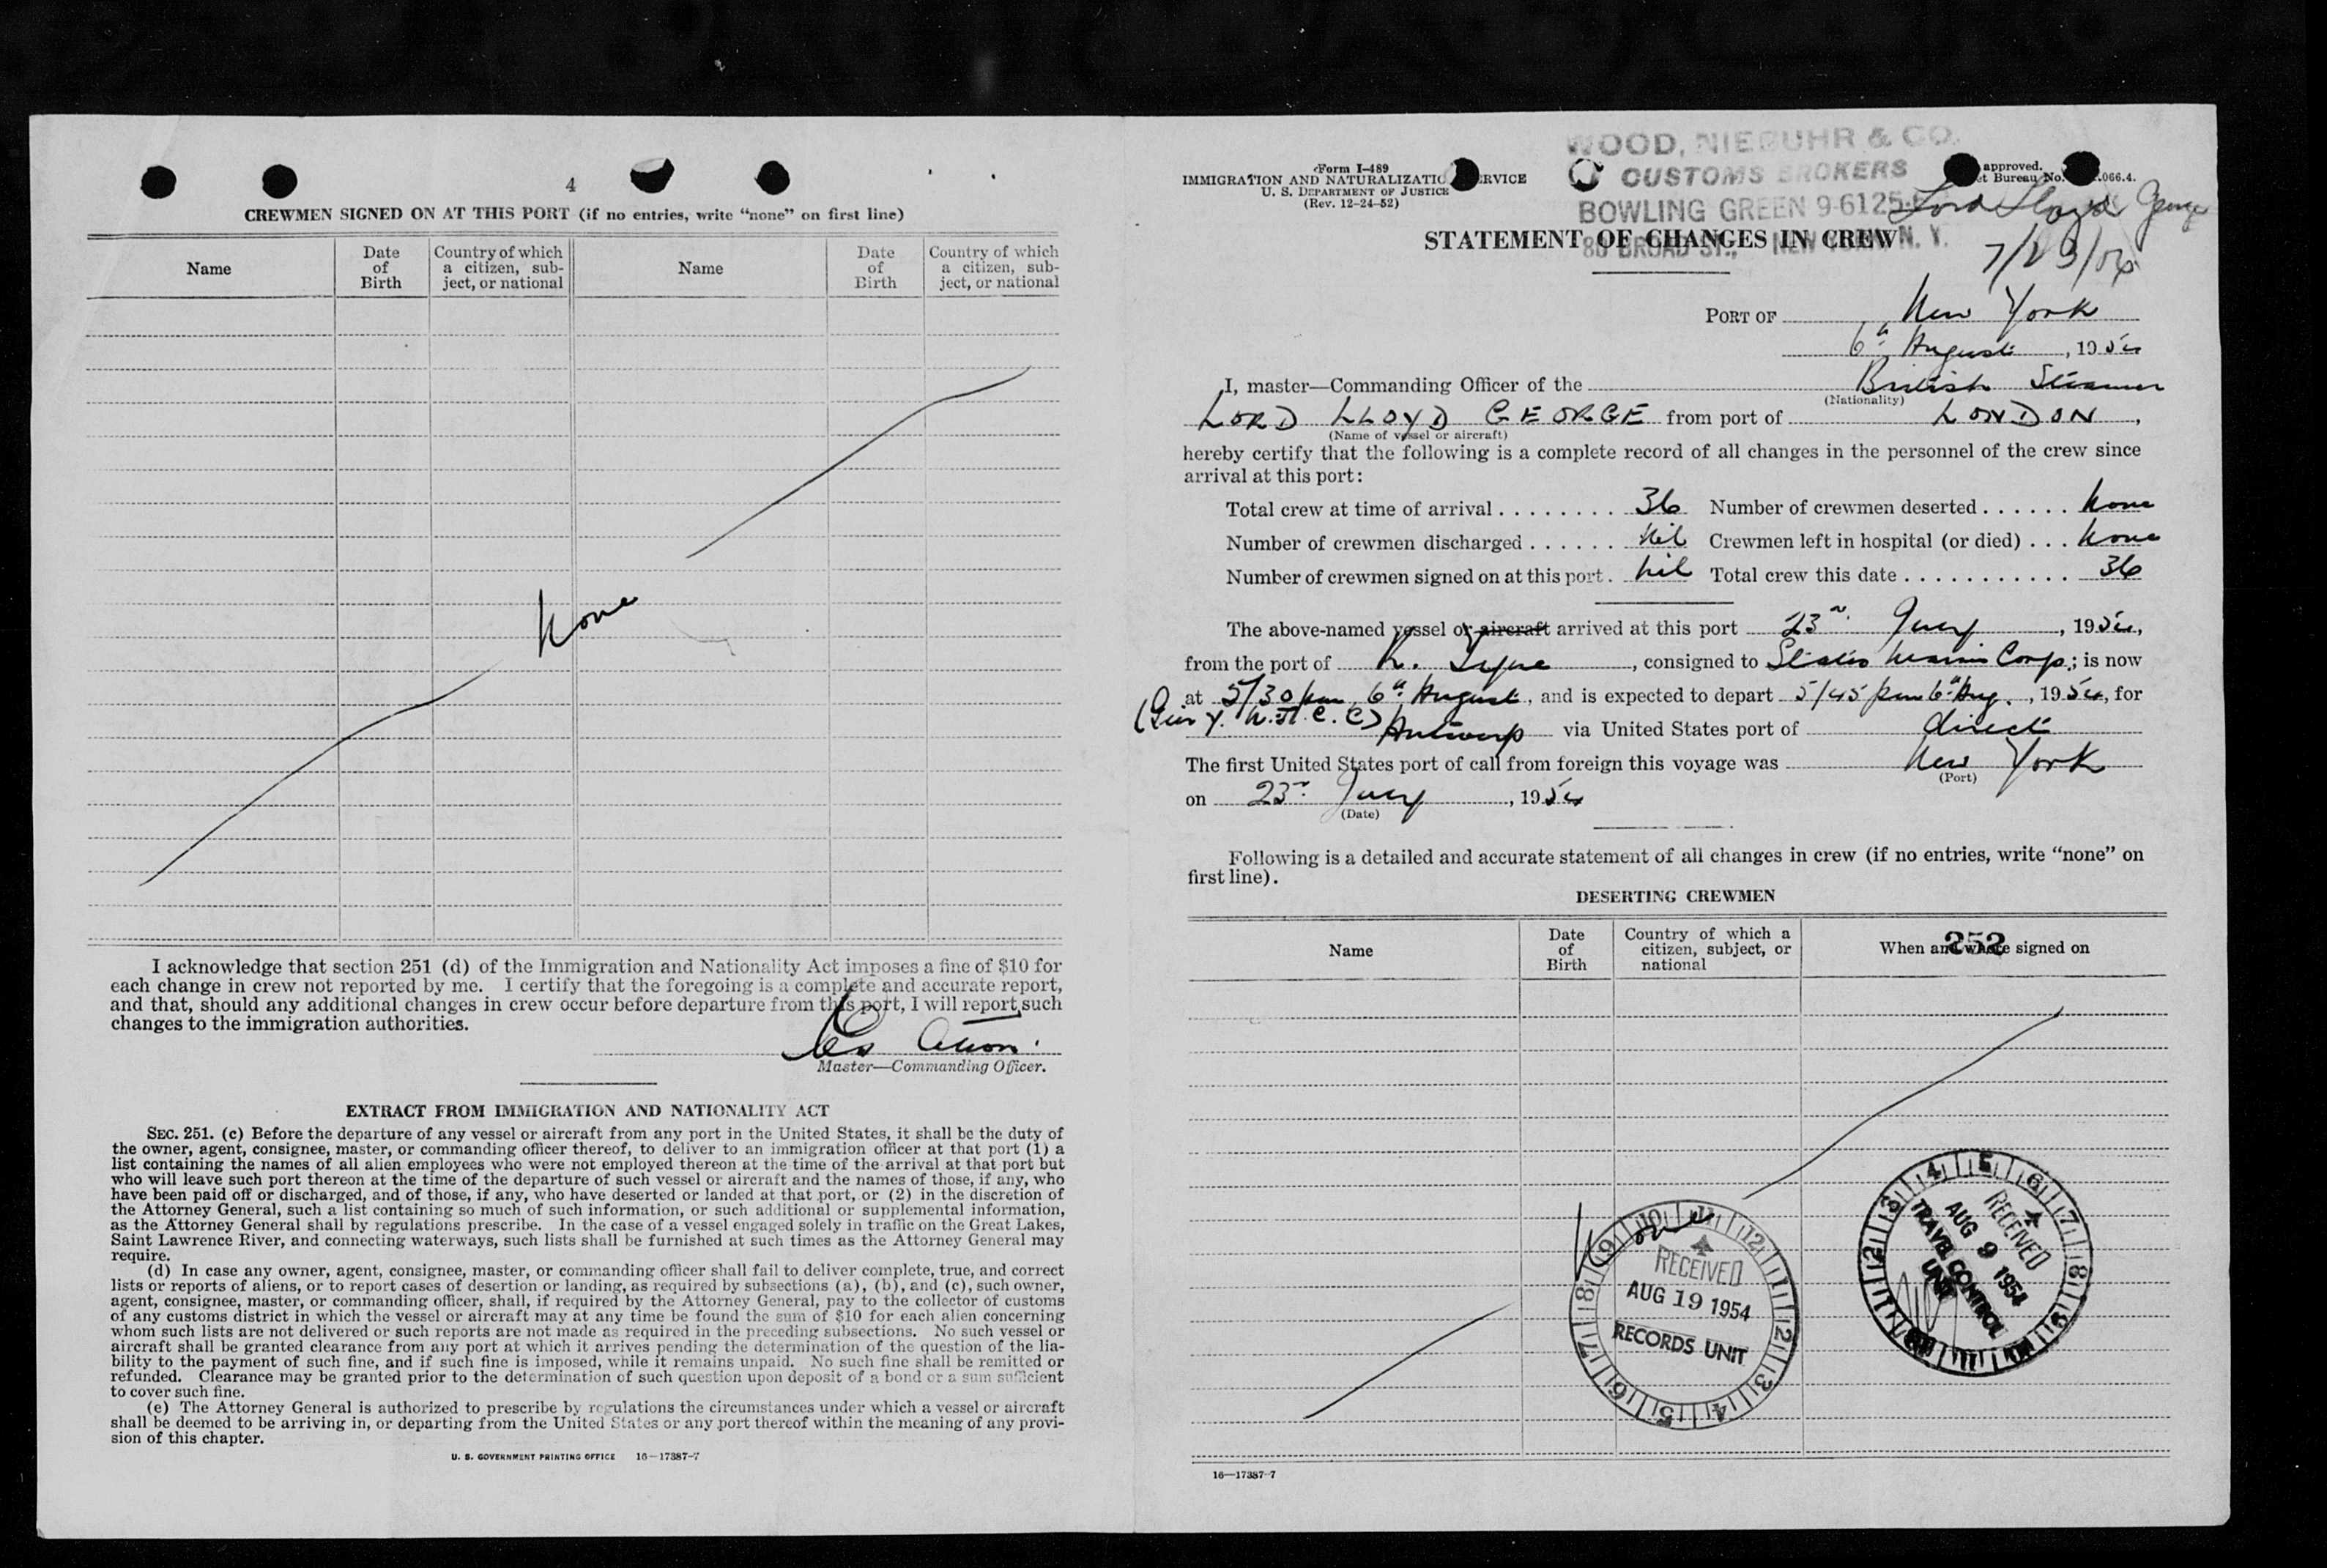 4
CREWMEN SIGNED ON AT THIS PORT (if no entries, write “none” on first line)
Name
Date of Birth
Country of which a citizen, sub-ject, or national
Name
Date of Birth
Country of which a citizen, sub-ject, or national
None
I acknowledge that section 251 (d) of the Immigration and Nationality Act imposes a fine of $10 for
each change in crew not reported by me. I certify that the foregoing is a complete and accurate report,
and that, should any additional changes in crew occur before departure from this port, I will report such
changes to the immigration authorities.
Master—Commanding Officer.
EXTRACT FROM IMMIGRATION AND NATIONALITY ACT
SEC. 251. (c) Before the departure of any vessel or aircraft from any port in the United States, it shall be the duty of
the owner, agent, consignee, master, or commanding officer thereof, to deliver to an immigration officer at that port (1) a
list containing the names of all alien employees who were not employed thereon at the time of the arrival at that port but
who will leave such port thereon at the time of the departure of such vessel or aircraft and the names of those, if any, who
have been paid off or discharged, and of those, if any, who have deserted or landed at that port, or (2) in the discretion of
the Attorney General, such a list containing so much of such information, or such additional or supplemental information,
as the Attorney General shall by regulations prescribe. In the case of a vessel engaged solely in traffic on the Great Lakes,
Saint Lawrence River, and connecting waterways, such lists shall be furnished at such times as the Attorney General may
require.
(d) In case any owner, agent, consignee, master, or commanding officer shall fail to deliver complete, true, and correct
lists or reports of aliens, or to report cases of desertion or landing, as required by subsections (a), (b), and (c), such owner,
agent, consignee, master, or commanding officer, shall, if required by the Attorney General, pay to the collector of customs
of any customs district in which the vessel or aircraft may at any time be found the sum of $10 for each alien concerning
whom such lists are not delivered or such reports are not made as required in the preceding subsections. No such vessel or
aircraft shall be granted clearance from any port at which it arrives pending the determination of the question of the lia-
bility to the payment of such fine, and if such fine is imposed, while it remains unpaid. No such fine shall be remitted or
refunded. Clearance may be granted prior to the determination of such question upon deposit of a bond or a sum sufficient
to cover such fine.
(e) The Attorney General is authorized to prescribe by regulations the circumstances under which a vessel or aircraft
shall be deemed to be arriving in, or departing from the United States or any port thereof within the meaning of any provi-
sion of this chapter.
U. S. GOVERNMENT PRINTING OFFICE 16—17387-7
Form I-489
IMMIGRATION AND NATURALIZATIO RVICE
U. S. DEPARTMENT OF JUSTICE
(Rev. 12-24-52)
WOOD, NIEBUHR & CO.
CUSTOMS BROKERS
BOWLING GREEN 9-6125
80 BROAD ST., NEW YORK N. Y.
approved.
et Bureau No. .066.4.
Lord Lloyd George
7/23/54
STATEMENT OF CHANGES IN CREW
PORT OF New York
6th August, 1954
I, master—Commanding Officer of the British Steamer
(Nationality)
LORD LLOYD GEORGE from port of LONDON,
(Name of vessel or aircraft)
hereby certify that the following is a complete record of all changes in the personnel of the crew since
arrival at this port:
Total crew at time of arrival ........ 36 Number of crewmen deserted ...... None
Number of crewmen discharged ...... Nil Crewmen left in hospital (or died) ... None
Number of crewmen signed on at this port. Nil Total crew this date ........... 36
The above-named vessel or aircraft arrived at this port 23rd July, 1954,
from the port of N. Tyne, consigned to States Marine Corp.; is now
at 5/30 pm 6th August, and is expected to depart 5/45 pm 6th Aug., 1954, for
Antwerp via United States port of direct
The first United States port of call from foreign this voyage was New York
(Port)
on 23rd July, 1954
(Date)
Following is a detailed and accurate statement of all changes in crew (if no entries, write “none” on
first line).
DESERTING CREWMEN
Name
Date of Birth
Country of which a citizen, subject, or national
When and where signed on
252
None
RECEIVED
AUG 19 1954
RECORDS UNIT
RECEIVED
AUG 9 1954
TRAVEL CONTROL
UNIT
16—17387-7